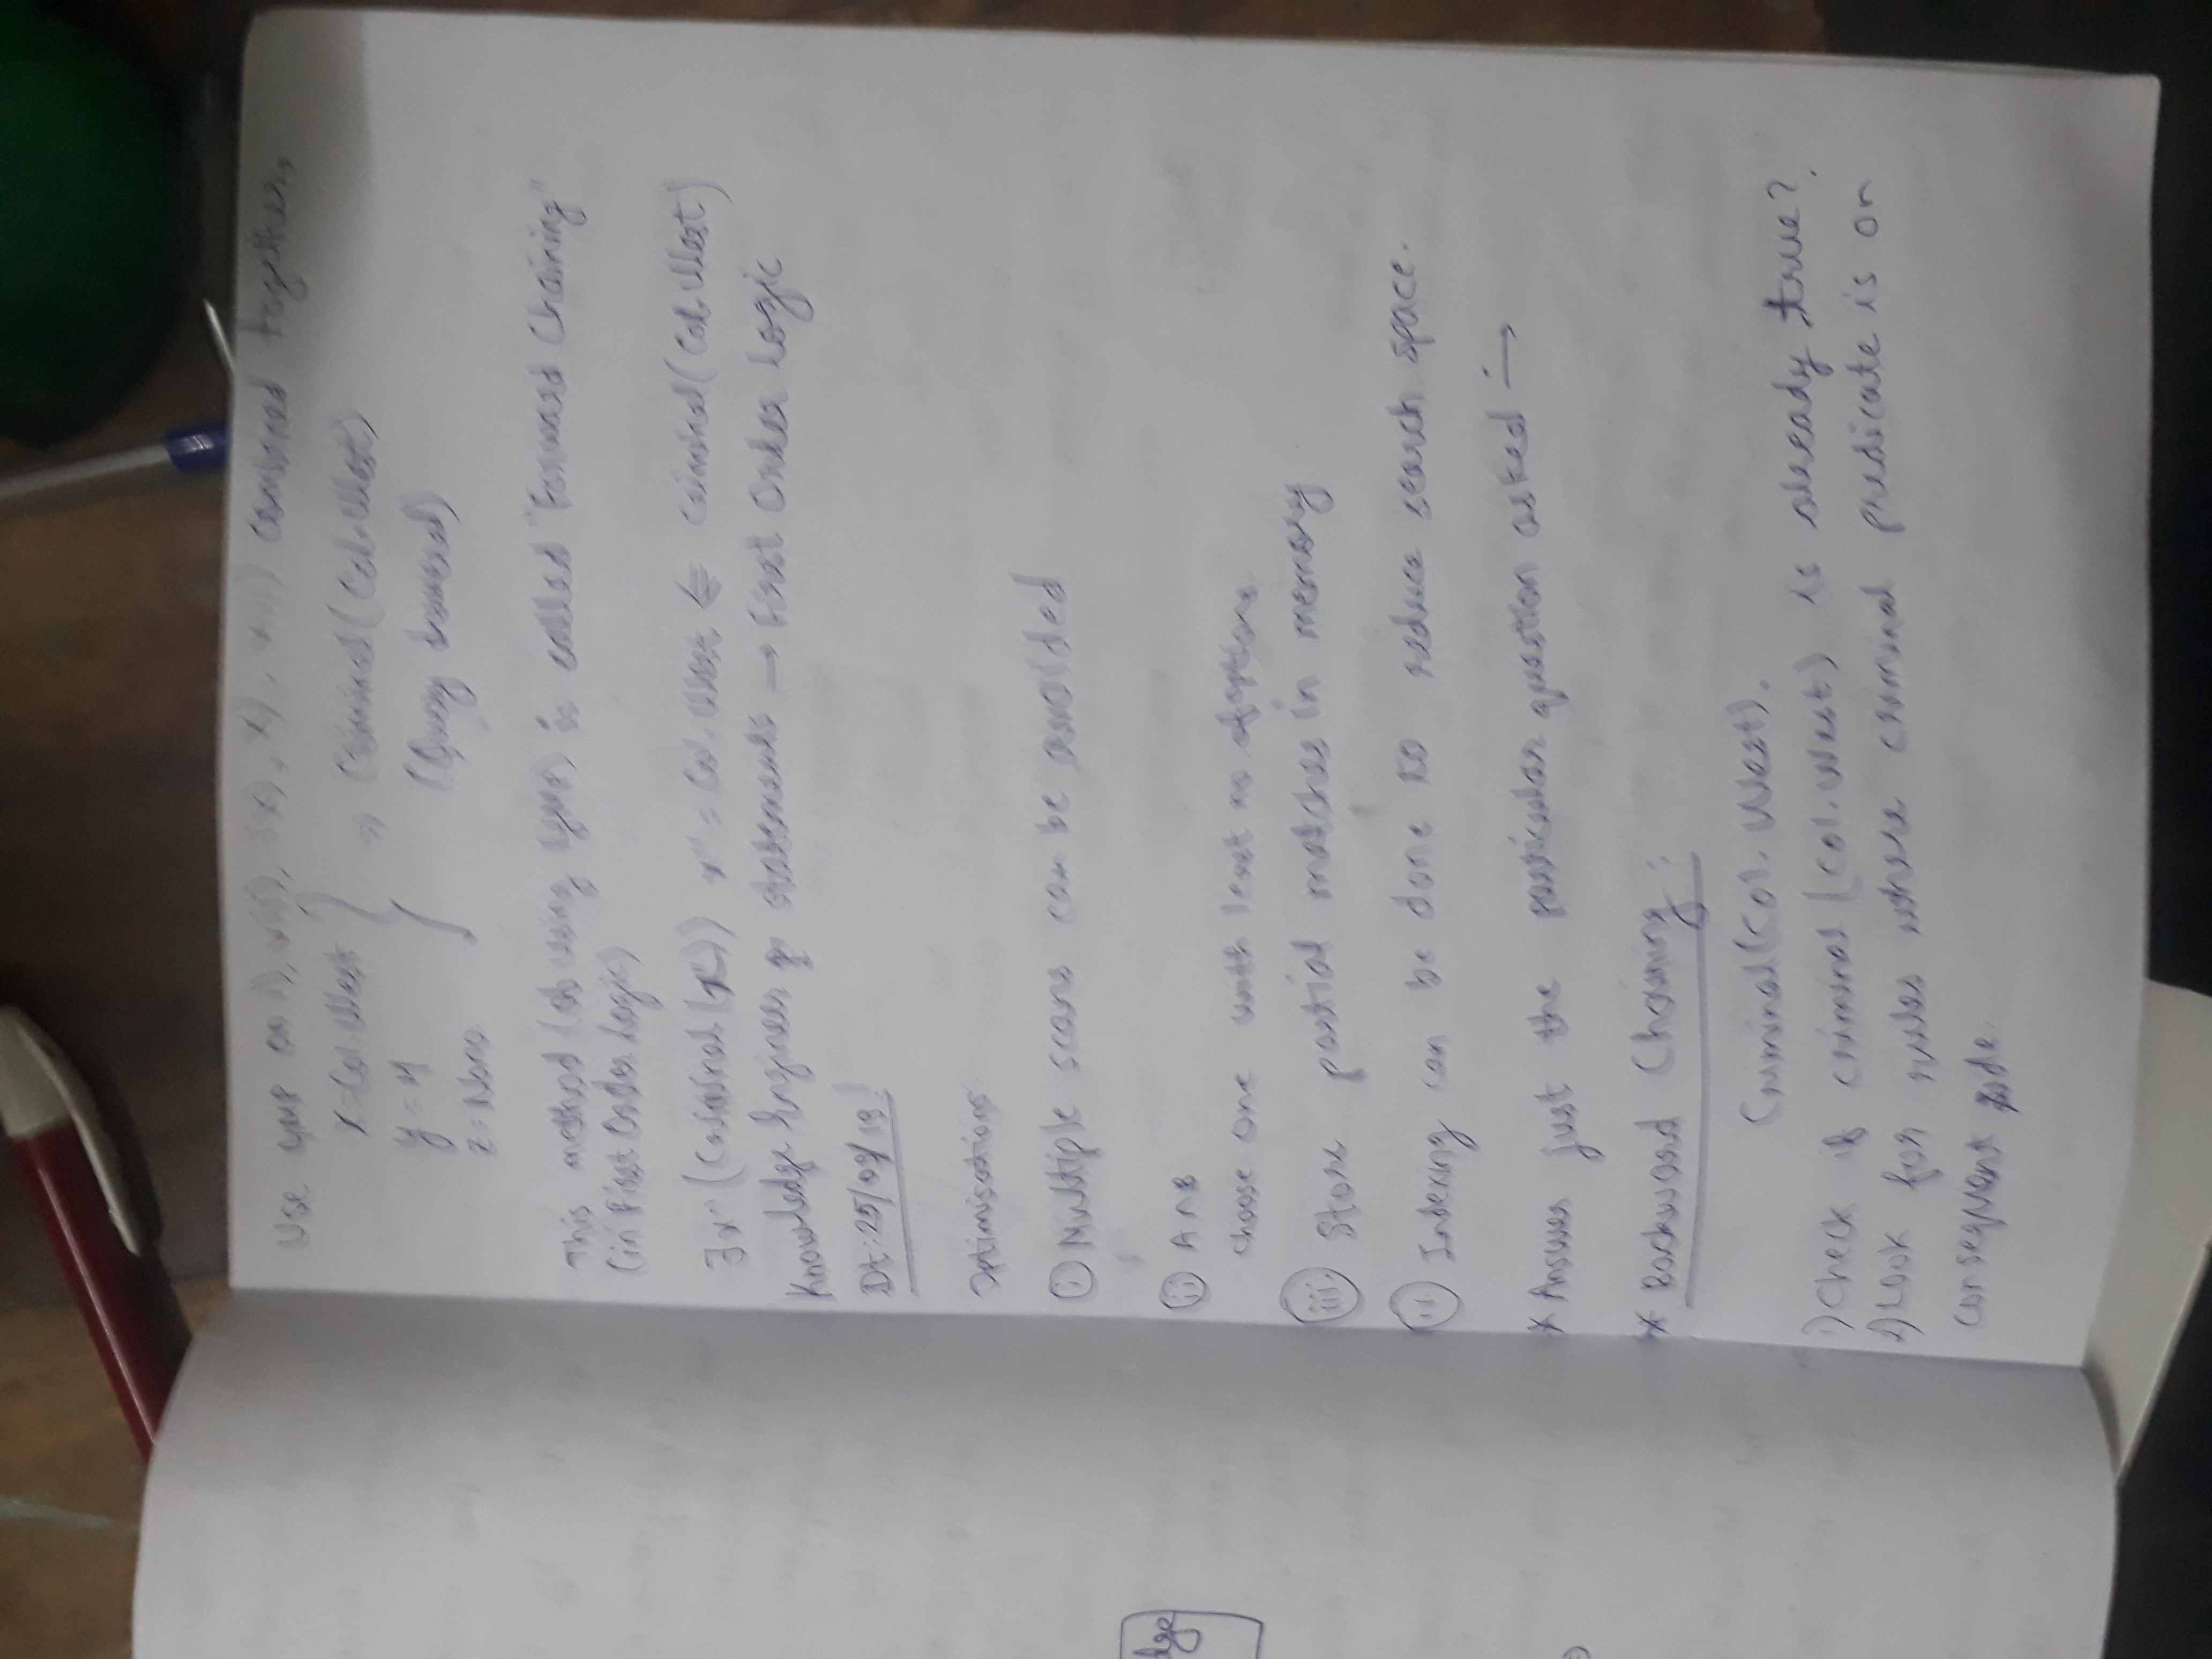 Use GMP on i), vii), ix), x), xii) combined together,
x = Col. West
y = M
z = Nono
} ⇒ Criminal (Col. West)
(Query Answered)
This method (of using GMP) is called "Forward Chaining"
(in First Order Logic)
∃x'' (Criminal (x'')) x'' = Col. West ⇐ Criminal (Col. West)
Knowledge Engineer statements → First Order Logic
Dt:- 25/09/19
Optimisations
i) Multiple scans can be avoided
ii) A ∧ B
choose one with least no of options
iii) Store partial matches in memory
Indexing can be done to reduce search space.
* Answer just the particular question asked :→
** Backward Chaining :
Criminal (Col. West).
1) Check if criminal (Col. West) is already true?
2) Look for rules where criminal predicate is on
consequent side.
dge